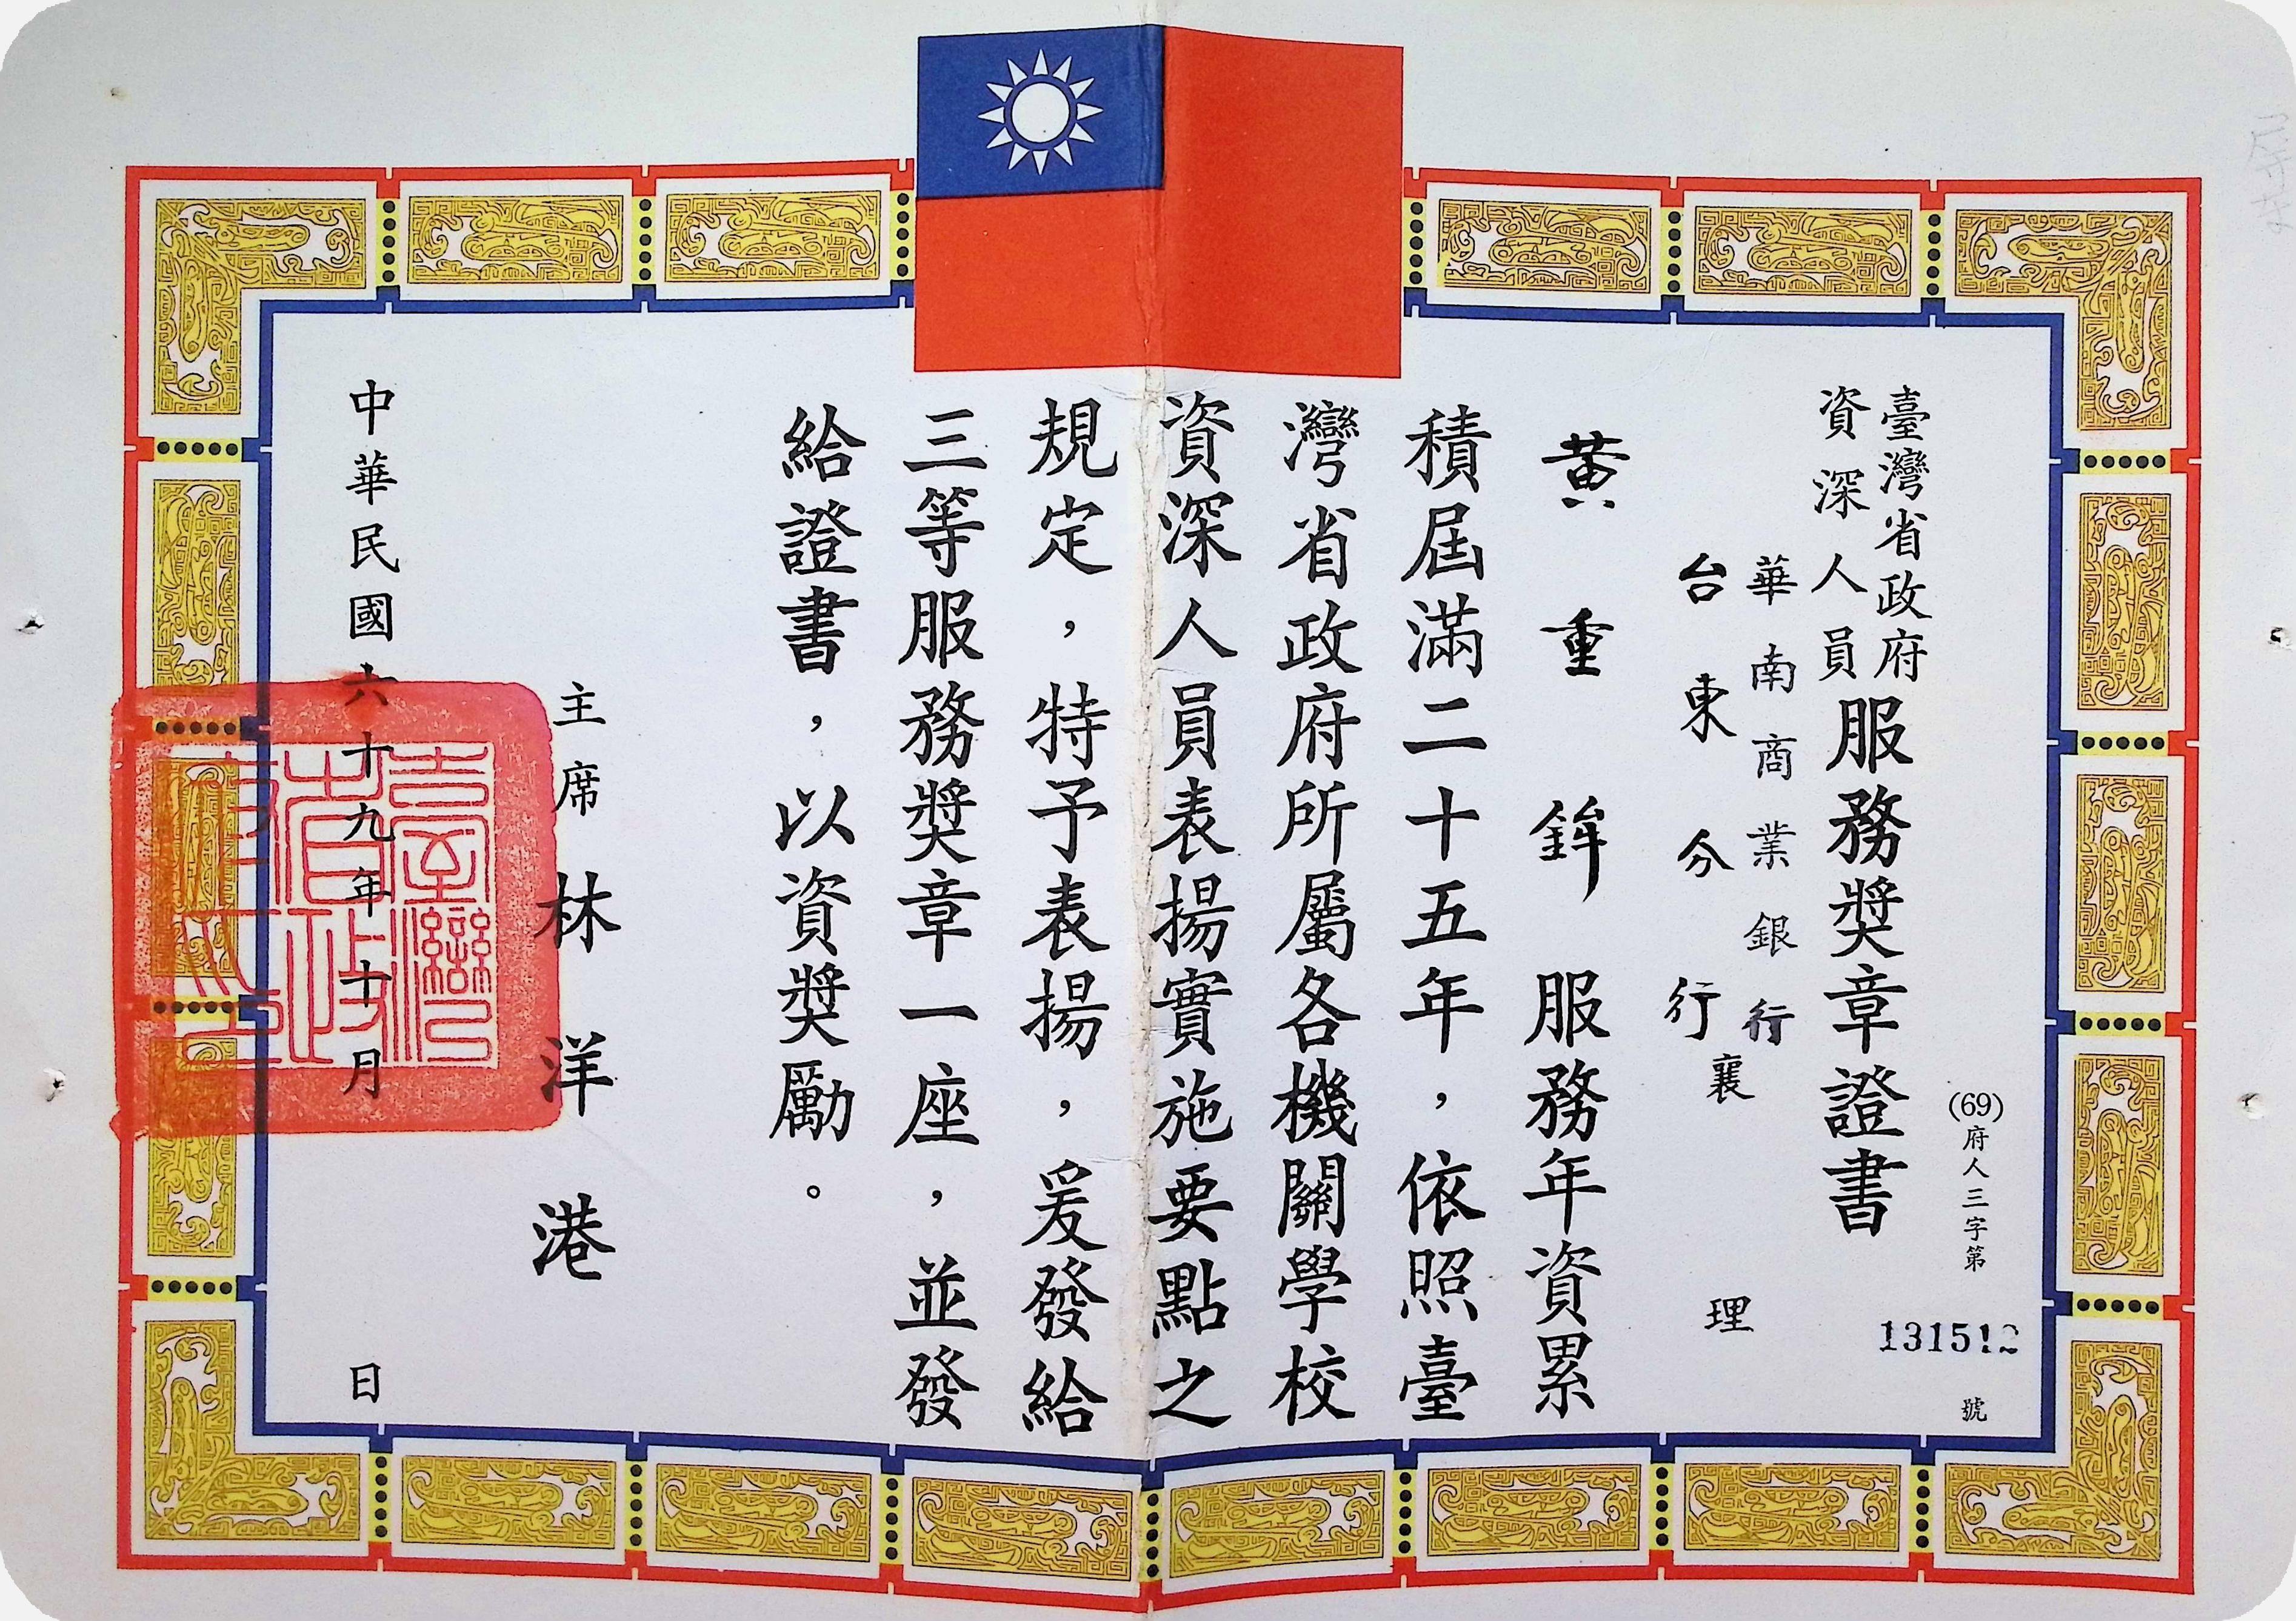 (69)府人三字第131512號
臺灣省政府
資深人員服務獎章證書
華南商業銀行
台東分行
襄理
黃重鉾服務年資累
積屆滿二十五年，依照臺
灣省政府所屬各機關學校
資深人員表揚實施要點之
規定，特予表揚，爰發給
三等服務獎章一座，並發
給證書，以資獎勵。
主席林洋港
中華民國六十九年十月日
臺灣省政府印